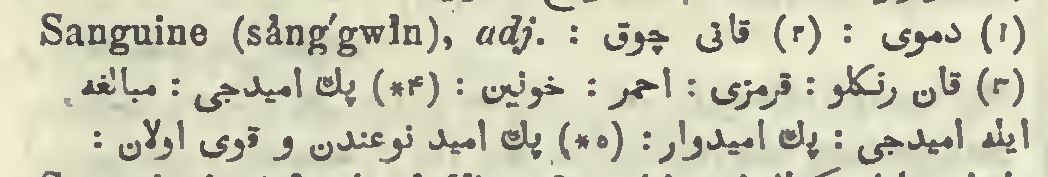 Sanguine (săng′gwĭn), adj. : (۱) دموی : (۲) قانی چوق
(۳) قان رنكلو : قرمزی : احمر : خونین : (۴*) پك امیدجی : مبالغه
ایله امیدجی : پك امیدوار : (۵*) پك امید نوعندن و قوی اولان :